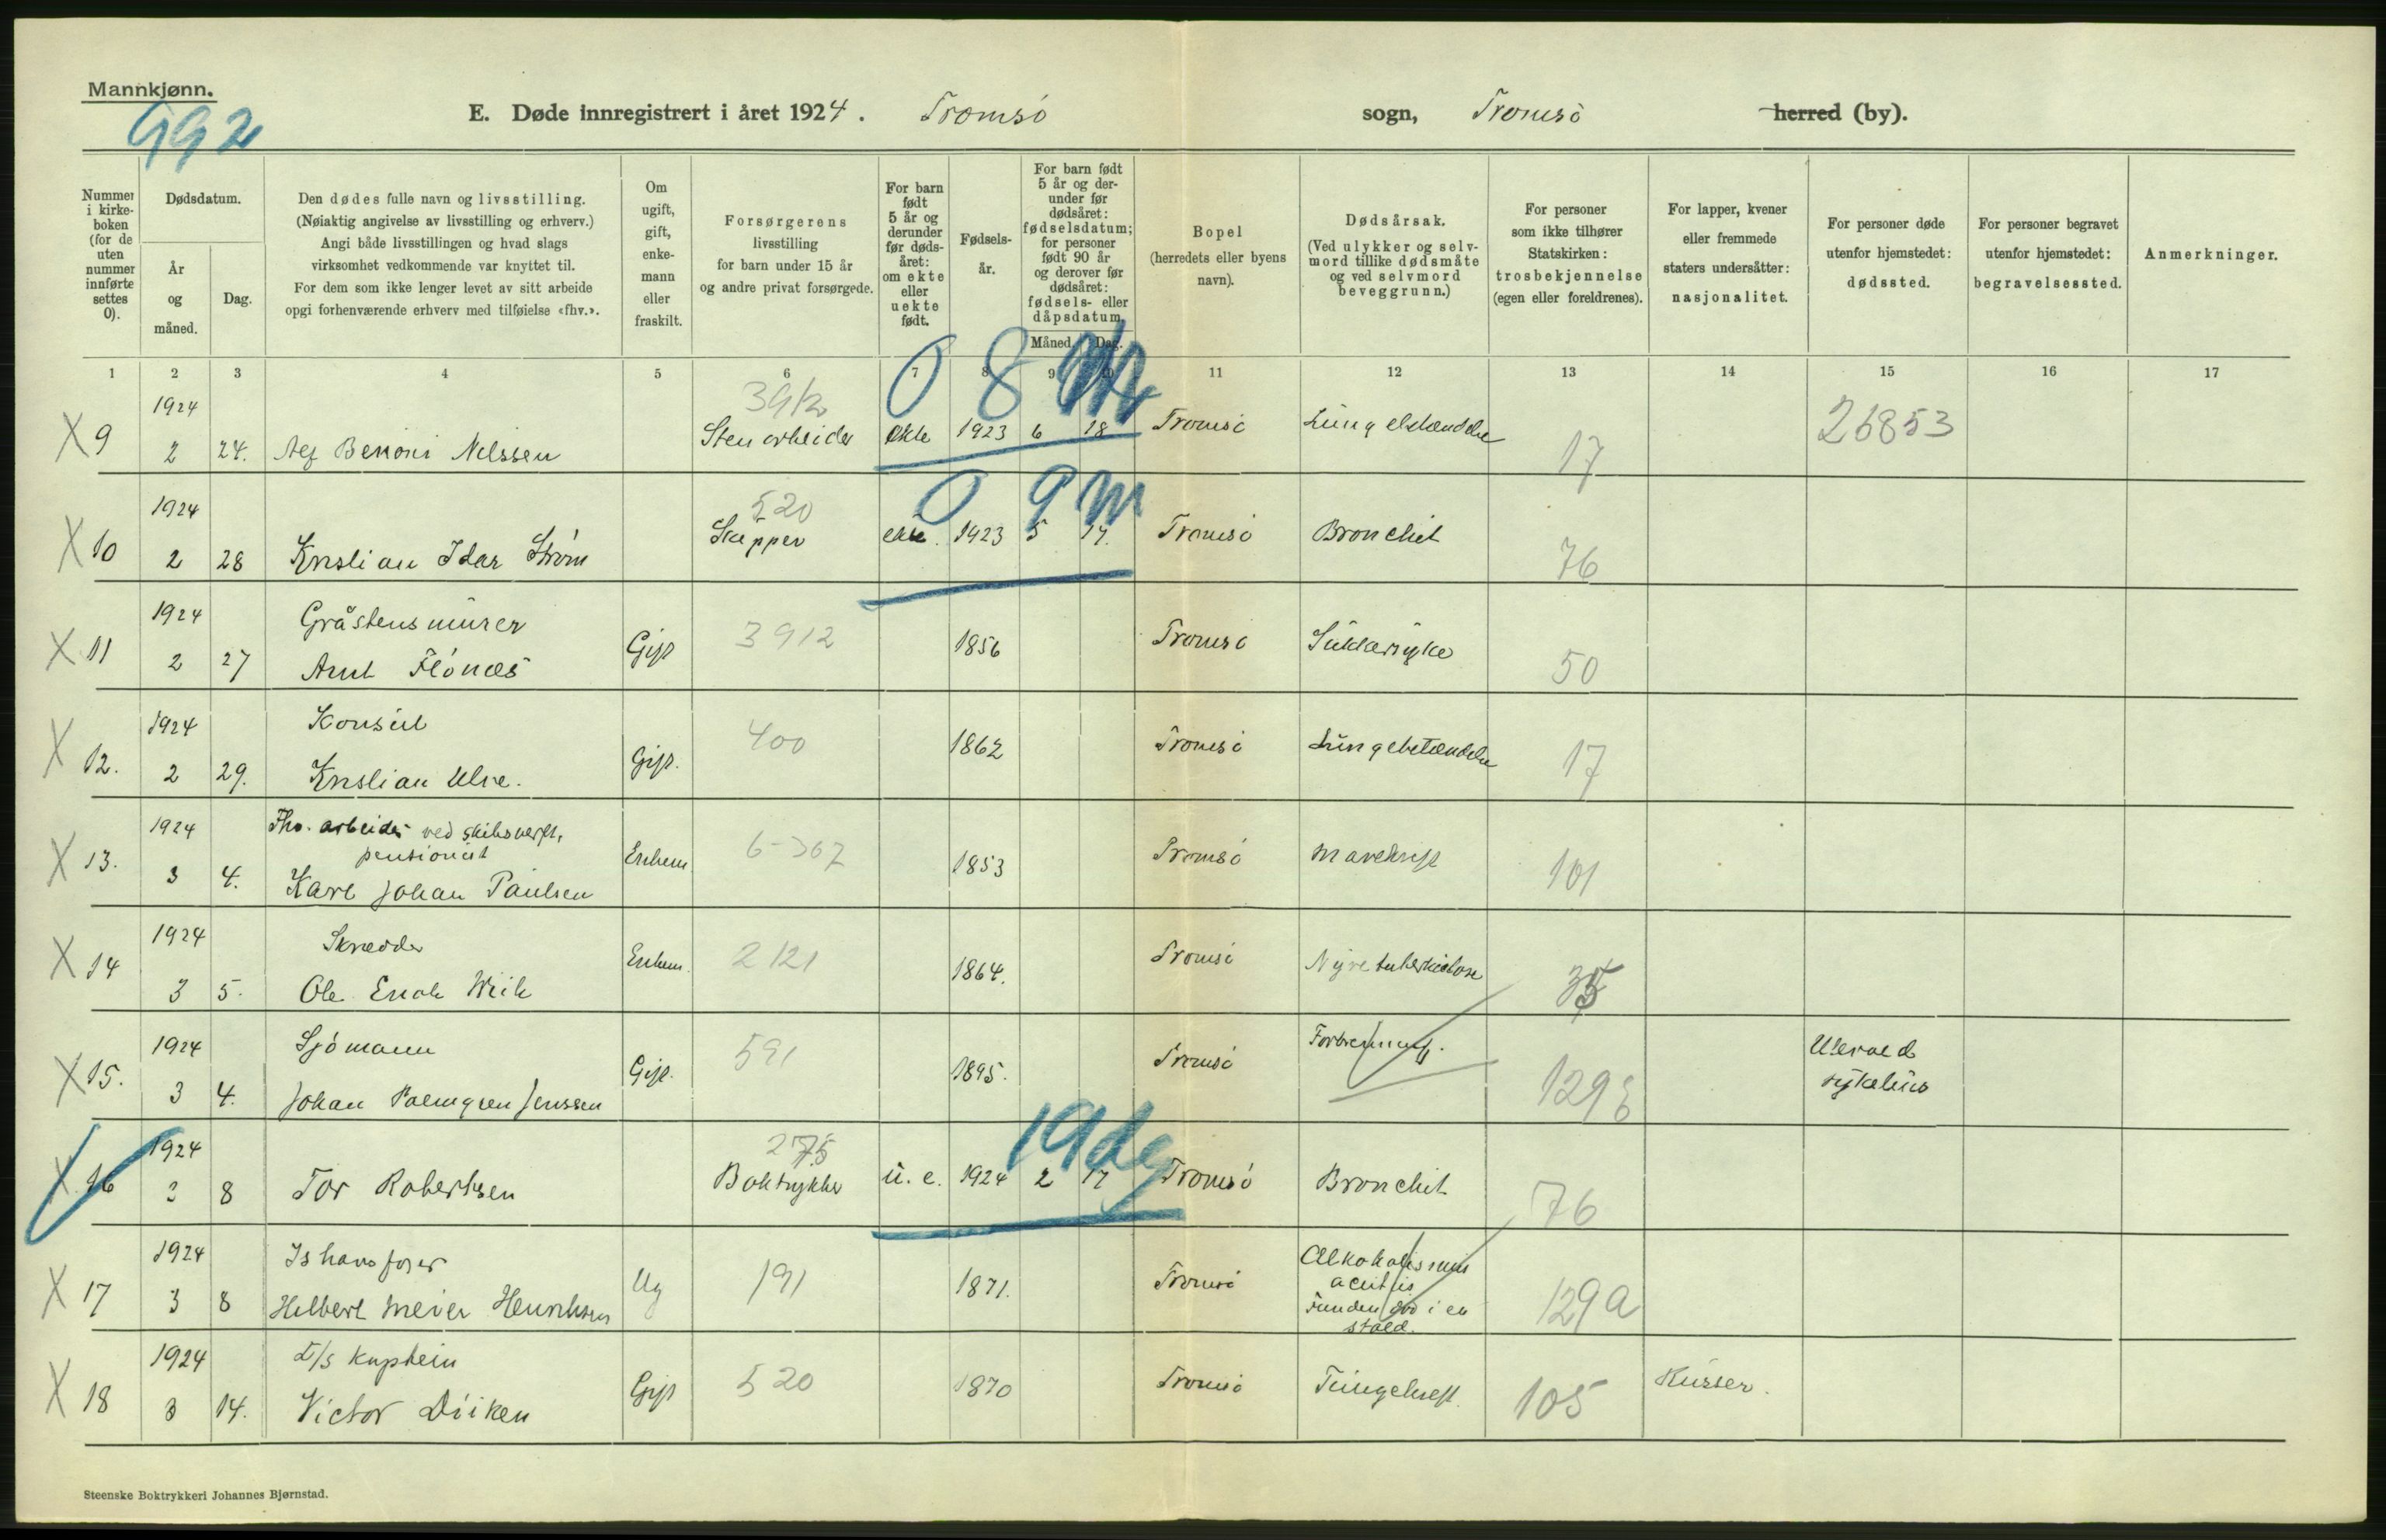 Mannkjønn.
992
E. Døde innregistrert i året 1924. Tromsö sogn, Tromsö herred (by).
Nummer i kirke-boken (for de uten nummer innførte settes 0).
Dødsdatum.
År og måned.
Dag.
Den dødes fulle navn og livsstilling.
(Nøiaktig angivelse av livsstilling og erhverv.)
Angi både livsstillingen og hvad slags
virksomhet vedkommende var knyttet til.
For dem som ikke lenger levet av sitt arbeide
opgi forhenværende erhverv med tilføielse «fhv.».
Om ugift, gift, enke-mann eller fraskilt.
Forsørgerens
livsstilling
for barn under 15 år
og andre privat forsørgede.
For barn født 5 år og derunder før døds-året: om ekte eller uekte født.
Fødsels-år.
For barn født 5 år og der-under før dødsåret: fødselsdatum; for personer født 90 år og derover før dødsåret: fødsels- eller dåpsdatum.
Måned. Dag.
Bopel
(herredets eller byens
navn).
Dødsårsak.
(Ved ulykker og selv-
mord tillike dødsmåte
og ved selvmord
beveggrunn.)
For personer
som ikke tilhører
Statskirken:
trosbekjennelse
(egen eller foreldrenes).
For lapper, kvener
eller fremmede
staters undersåtter:
nasjonalitet.
For personer døde
utenfor hjemstedet:
dødssted.
For personer begravet
utenfor hjemstedet:
begravelsessted.
Anmerkninger.
1 2 3 4 5 6 7 8 9 10 11 12 13 14 15 16 17
1924 3912 0 8 M
X 9 2 24. Benoni Nilssen Stenarbeider Ekte 1923 6 18 Tromsö Lungebetændelse 17 26853
1924 520 0 9 M
X 10 2 28 Kristian Idar Ström Skipper ekte. 1923 5 17. Tromsö Bronchit 76
1924 Gråstensmurer
X 11 2 27 Arnt Flönæs Gift 3912 1856 Tromsö Sukkersyke 50
1924 Konsul
X 12. 2 29. Kristian Ulve. Gift. 400 1862 Tromsö Lungebetændelse 17
1924 Fhv. arbeider ved skibsverft,
pensionist
X 13. 3 4. Karl Johan Paulsen Enkem 6-367 1853 Tromsö Mavekreft 101
1924 Skrædder
X 14 3 5. Ole Enok Wiik Enkem. 2121 1864. Tromsö Nyretuberkulose 35
1924 Sjömann
X 15. 3 4. Johan Palmgren Jenssen Gift. 591 1895. Tromsö Forbrenning. 129 Ullevold
sykehus
1924 275 19 dg
X 16 3 8 Tor Robertsen Boktrykker u. e. 1924 2 17 Tromsö Bronchit 76
1924 Ishavsfarer
X 17 3 8 Hilbert Meier Henriksen Ug 191 1871. Tromsö Alkoholismus
acutus
Funden död i en
stald. 129a
1924 D/s kaptein
X 18 3 14. Victor Düken Gift 520 1870 Tromsö Tungekreft. 105 Russer.
Steenske Boktrykkeri Johannes Bjørnstad.